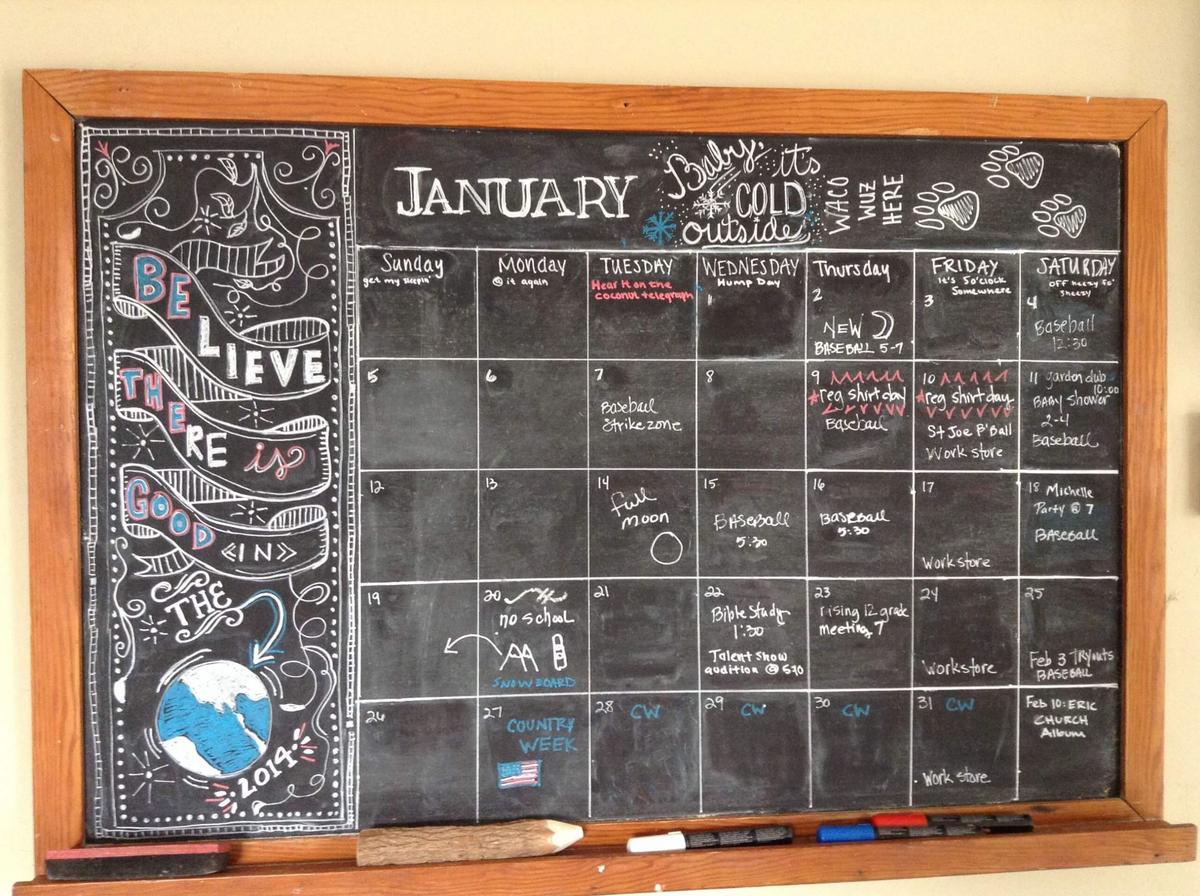 BE
LIEVE
THE
RE is
GOOD
<IN>
THE
2014
JANUARY
Baby, it's
COLD
outside
WACO
WUZ
HERE
Sunday
get my sleepin'
Monday
@ it again
TUESDAY
Hear it on the
coconut telegraph
WEDNESDAY
Hump Day
Thursday
FRIDAY
it's 5o'clock
Somewhere
SATURDAY
OFF heezy fo'
sheezy
1
2
NEW
BASEBALL 5-7
3
4
Baseball
12:30
5
6
7
Baseball
Strikezone
8
9
reg shirt day
Baseball
10
reg shirt day
St Joe B'Ball
Work store
11 garden club
10:00
BABY Shower
2-4
Baseball
12
13
14
Full
moon
15
BASEBALL
5:30
16
BASEBALL
5:30
17
Work store
18 Michelle
Party @ 7
BASEBALL
19
20
no school
SNOWBOARD
21
22
Bible Study
1:30
Talent Show
audition @ 530
23
rising 12 grade
meeting 7
24
Workstore
25
Feb 3 TRYouts
BASEBALL
26
27
COUNTRY
WEEK
28 CW
29 CW
30 CW
31 CW
Work store
Feb 10: ERIC
CHURCH
Album